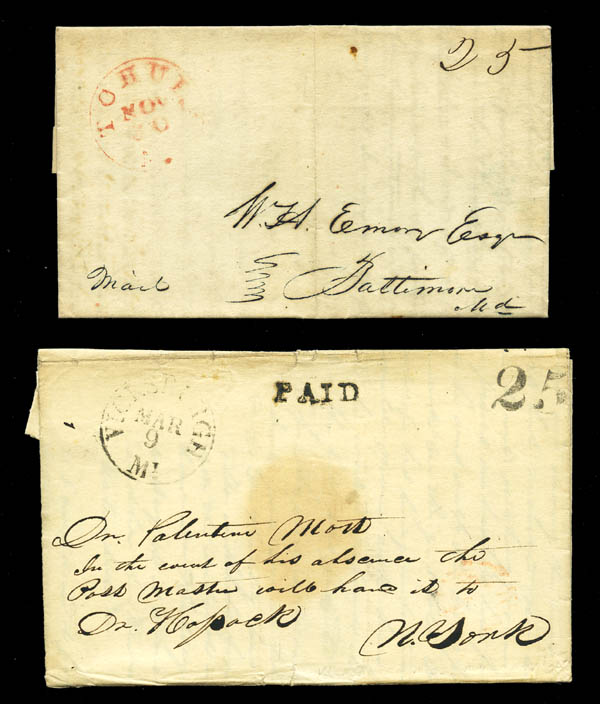 25
TCHU
NOV
W. H. Emory Esqr
Baltimore
Md
Mail
PAID
25
VICKSBURGH
MAR
9
Mi
Dr. Valentine Mott
In the event of his absence the
Post Master will hand it to
Dr. Hosack
N. York